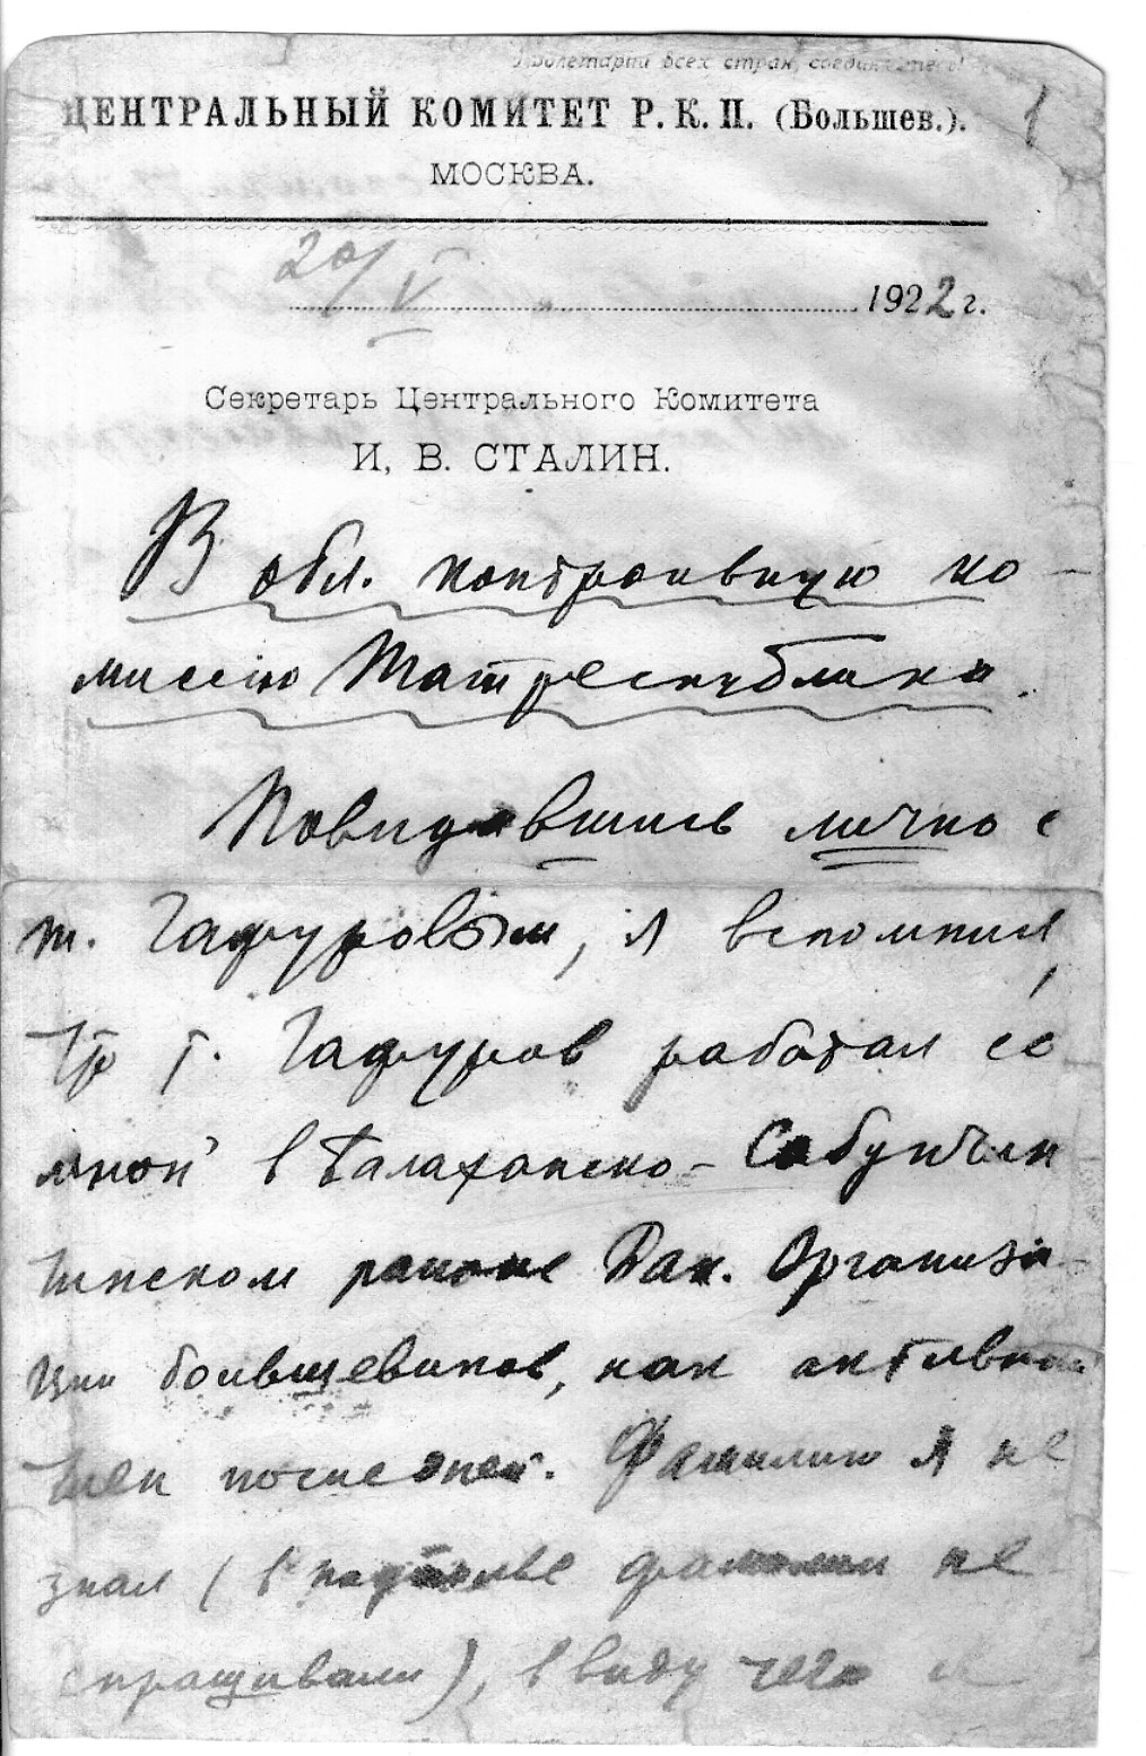 Пролетарии всех стран, соединяйтесь!
ЦЕНТРАЛЬНЫЙ КОМИТЕТ Р.К.П. (Большев.).
1
МОСКВА.
20/V 1922 г.
Секретарь Центрального Комитета
И, В. СТАЛИН.
В обл. контрольную ко-
миссию Татреспублики.
Повидавшись лично с
т. Гафуровым, я вспомнил,
что т. Гафуров работал со
мной в Балахано-Сабунчин
шнском районе Бак. Организа-
ции большевиков, как активный
член последней. Фамилию я не
знал (в подполье фамилии не
спрашивали), ввиду чего я